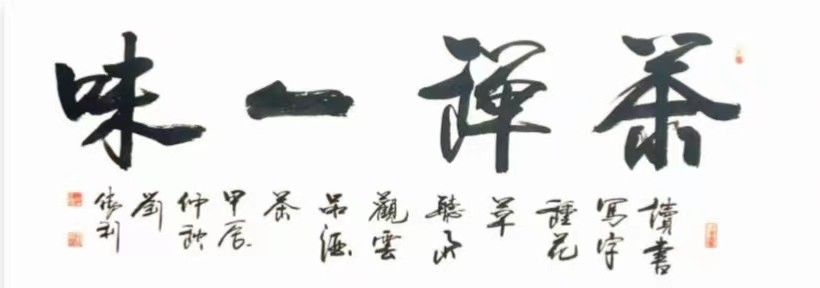 茶禪一味
讀書
寫字
種花
草
聽
觀雲
品酒
茶
甲辰
仲秋
劉
利